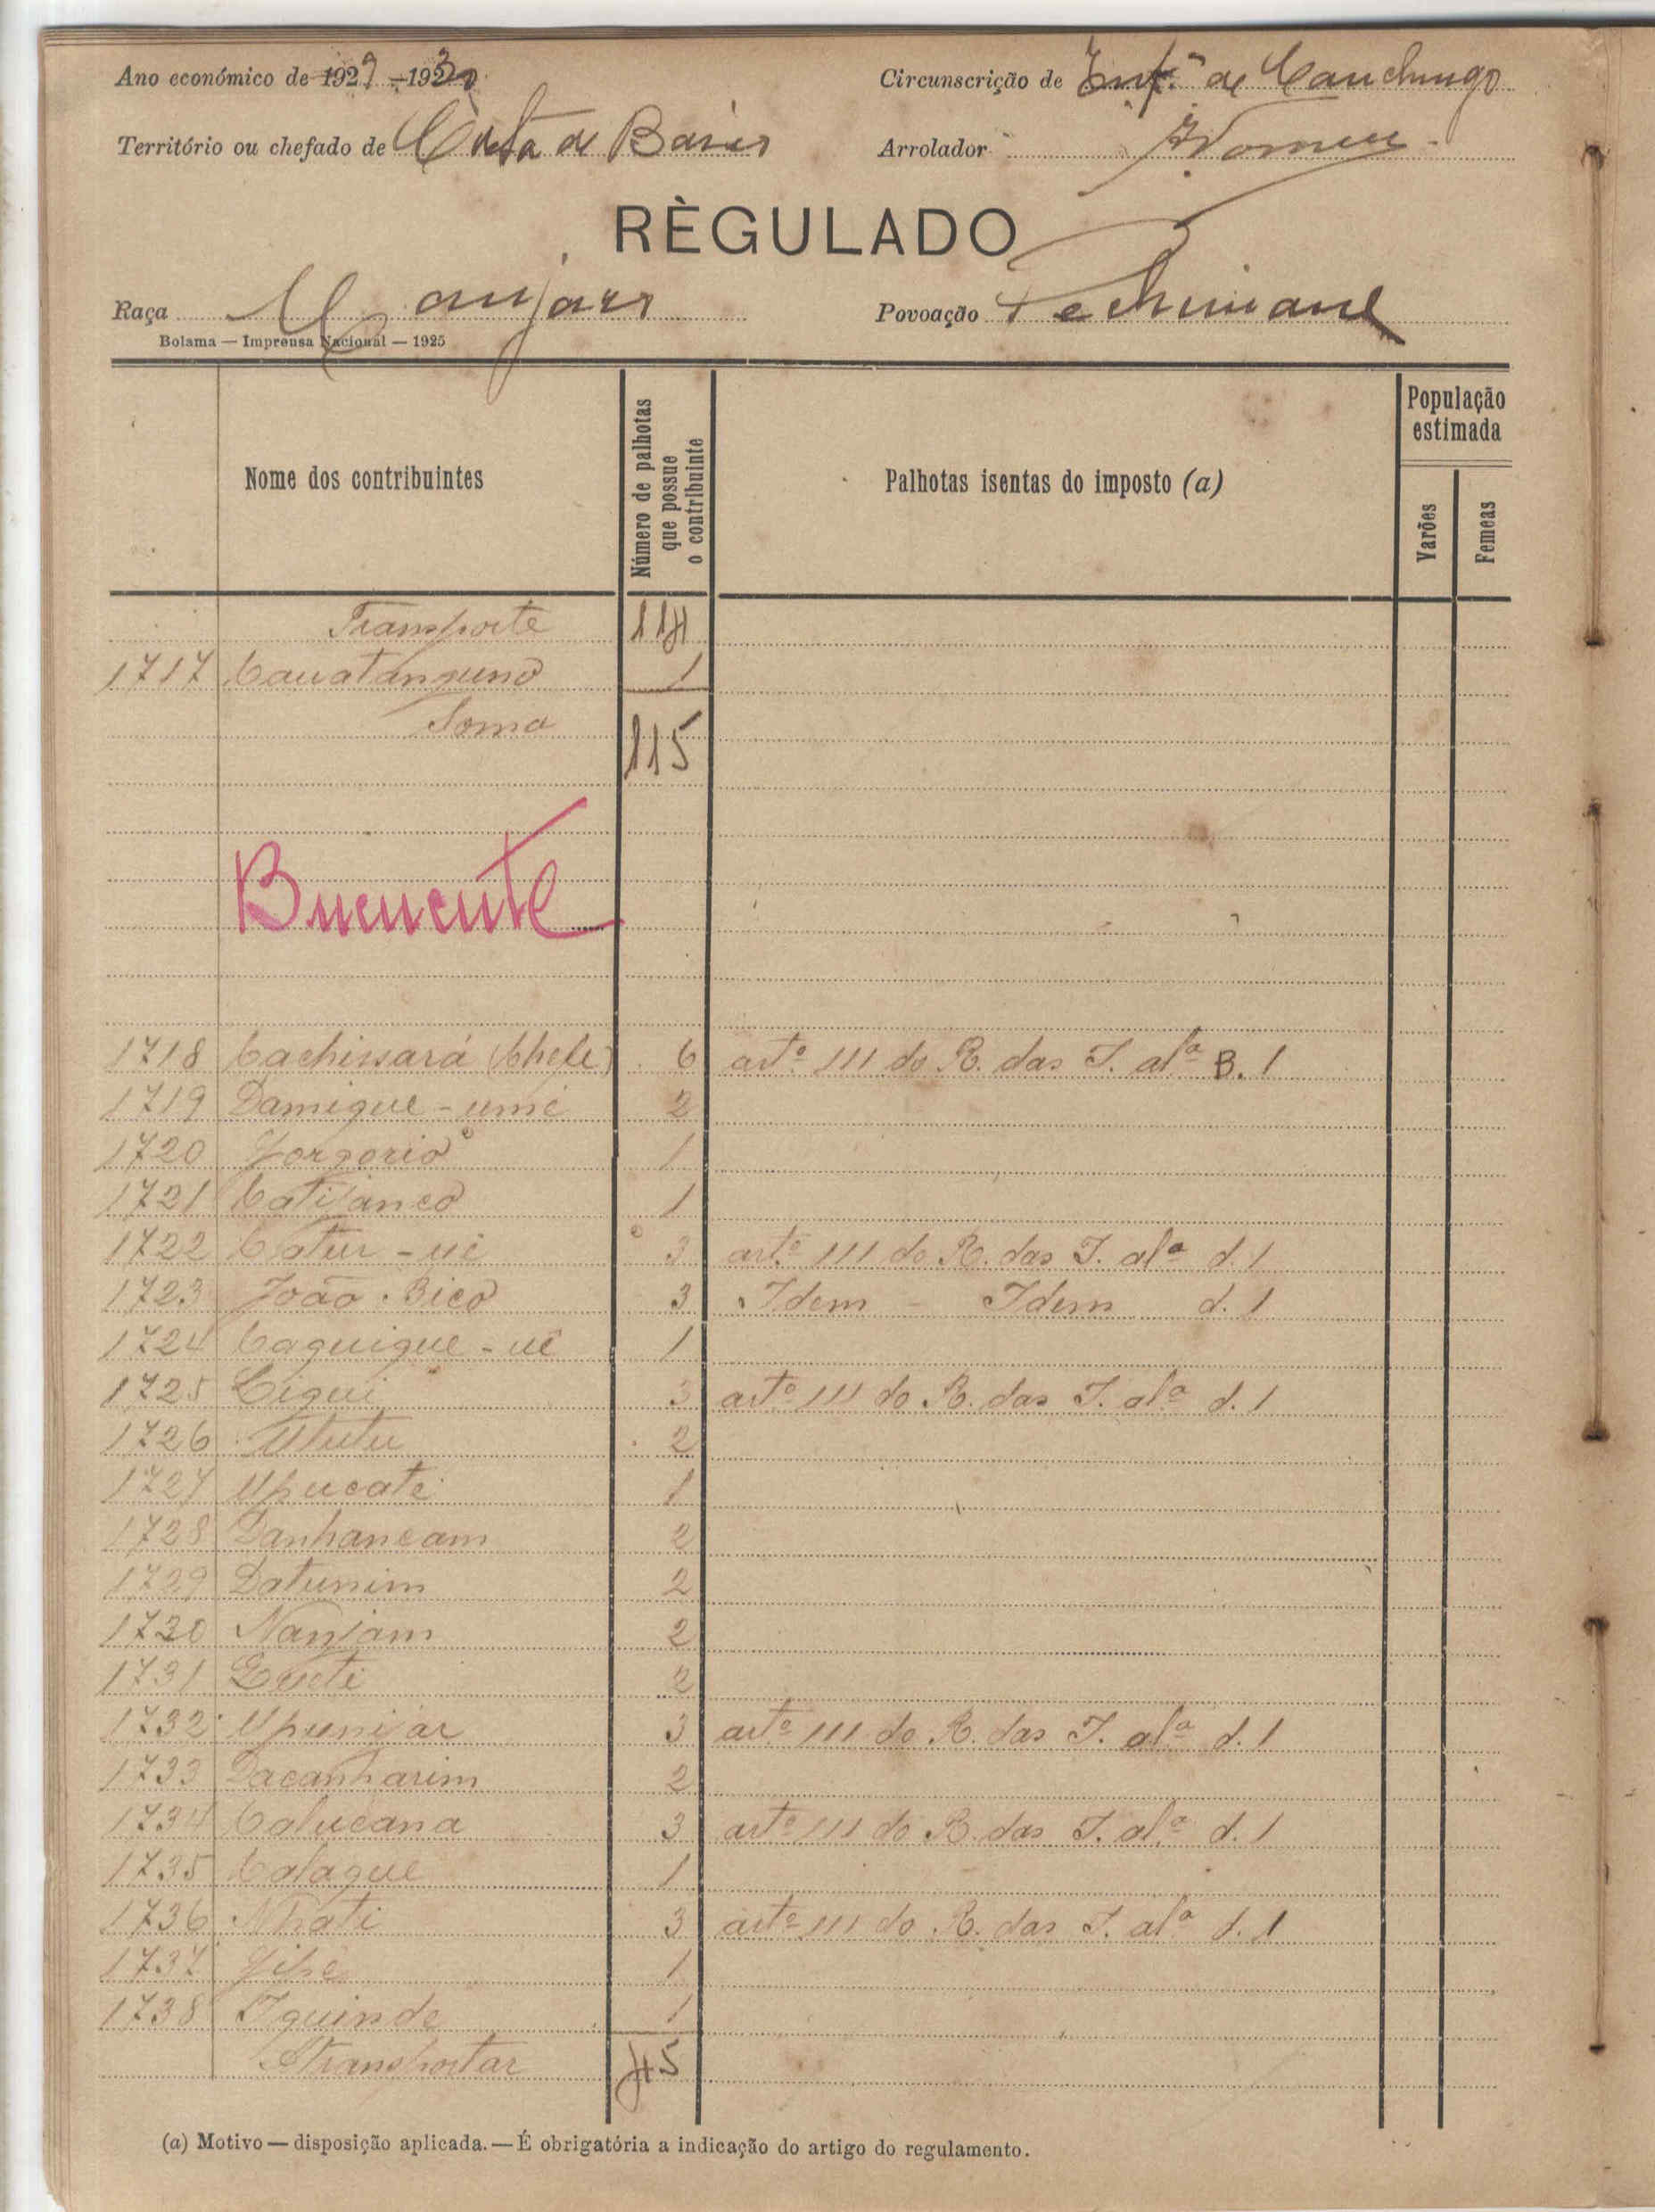 Ano económico de 1929-1930
Circunscrição de Inf.ª de Canchungo
Território ou chefado de Costa de Baixo
Arrolador
RÈGULADO
Raça Manjaco
Povoação Pechimane
Bolama — Imprensa Nacional — 1925
Nome dos contribuintes
Número de palhotas que possue o contribuinte
Palhotas isentas do imposto (a)
População estimada
Varões
Femeas
Transporte 114
1717 1
Soma 115
Bucucute
1718 Cachissará (Chefe) 6 artº 111 do R. das I. alª B. 1
1719 Damigue-umé 2
1720 Jorgorió 1
1721 Catijanco 1
1722 Catur-ué 3 artº 111 do R. das I. alª d. 1
1723 João Bico 3 Idem - Idem d. 1
1724 Caguigue-ué 1
1725 Cigui 3 artº 111 do R. das I. alª d. 1
1726 Ututu 2
1727 Upucate 1
1728 Danhancam 2
1729 Datunim 2
1730 Nanjam 2
1731 2
1732 Upunjar 3 artº 111 do R. das I. alª d. 1
1733 Dacanharim 2
1734 Calucana 3 artº 111 do R. das I. alª d. 1
1735 Calague 1
1736 Nhati 3 artº 111 do R. das I. alª d. 1
1737 1
1738 Iguinde 1
Transportar 45
(a) Motivo — disposição aplicada. — É obrigatória a indicação do artigo do regulamento.